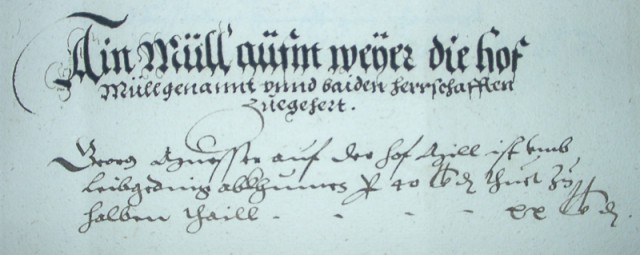 Ain Müll auŭm weÿer die hof
Müll genannt vnnd baiden herrschafften
Zuegehert.
Georg auf der hof Mill ist vmb
leibgeding abkhumen p 40 lb dn thuet Zu
halben thaill - - - - xx lb dn.